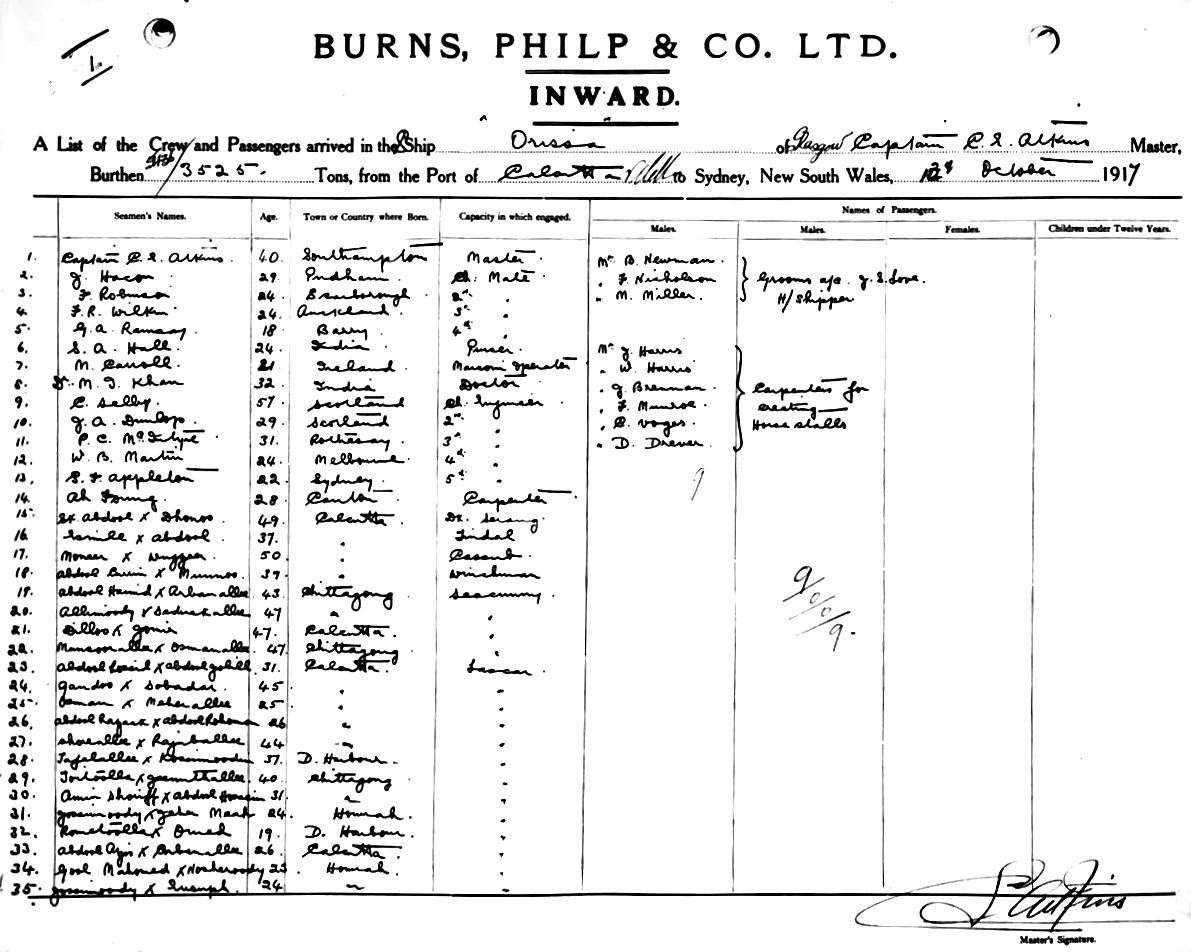 1.
BURNS, PHILP & CO. LTD.
INWARD.
A List of the Crew and Passengers arrived in the Ship Orissa of Glasgow Captain C. E. Atkins Master,
Burthen 3525 Tons, from the Port of Calcutta to Sydney, New South Wales, October 1917
Seamen's Names. Age. Town or Country where Born. Capacity in which engaged. Names of Passengers.
Males. Males. Females. Children under Twelve Years.
1. Captain C. E. Atkins. 40. Southampton Master. Mr B. Newman.
2. J. Hacon 29. Pudham. Ch. Mate " F. Nicholson Grooms a/c J. S. Love.
3. F. Robinson 24. Scarborough 2nd " " M. Miller. H/Shipper
4. F. R. Wilkin 24. Auckland. 3rd "
5. G. A. Ramsay. 18 Barry 4th "
6. S. A. Hall. 24. India Purser. Mr J. Harris
7. M. Carroll. 21 Ireland Marconi Operator " W. Harris
8. Dr. M. I. Khan 32 India Doctor " J. Brennan Carpenters for
9. C. Selby. 57 Scotland Ch. Engineer " F. Munroe. erecting
10. J. A. Dunlop. 29. Scotland 2nd " " C. Voges. Horse stalls
11. P. C. McIntyre 31. Rothesay. 3rd " " D. Drever.
12. W. B. Martin 24. Melbourne 4th "
13. S. F. Appleton 22. Sydney. 5th " 9
14. Ah Foung. 28. Canton Carpenter
15. Sk. Abdool x Dhonoo. 49. Calcutta Dk. Serang.
16. x Abdool. 37. " Tindal
17. Moneer x 50. " Cassub.
18. Abdool x Munnoo. 37. " Winchman
19. Abdool Hamid x Arban allee 43. Chittagong Seacunny.
20. Allimoody x Saduck allee 47 " "
21. Dilloo x Gomir 47. Calcutta. "
22. Munsoor allee x Osman allee. 47 Chittagong "
23. Abdool x Abdool 31. Calcutta. Lascar.
24. Gandoo x Sobadar. 45 " "
25. Osman x Meher allee 25 " "
26. Abdool Razack x Abdool Rohoman 26 " "
27. x Rajaballee 44 " "
28. x 37. D. Harbour. "
29. x 40. Chittagong "
30. Amin Shariff x Abdool Hossein 31. " "
31. x Meah 24. Howrah. "
32. x Omed 19. D. Harbour. "
33. Abdool x 26. Calcutta. "
34. Gool Mahomed x 23. Howrah. "
35. x 24 " "
9/0/0/9.
Master's Signature.